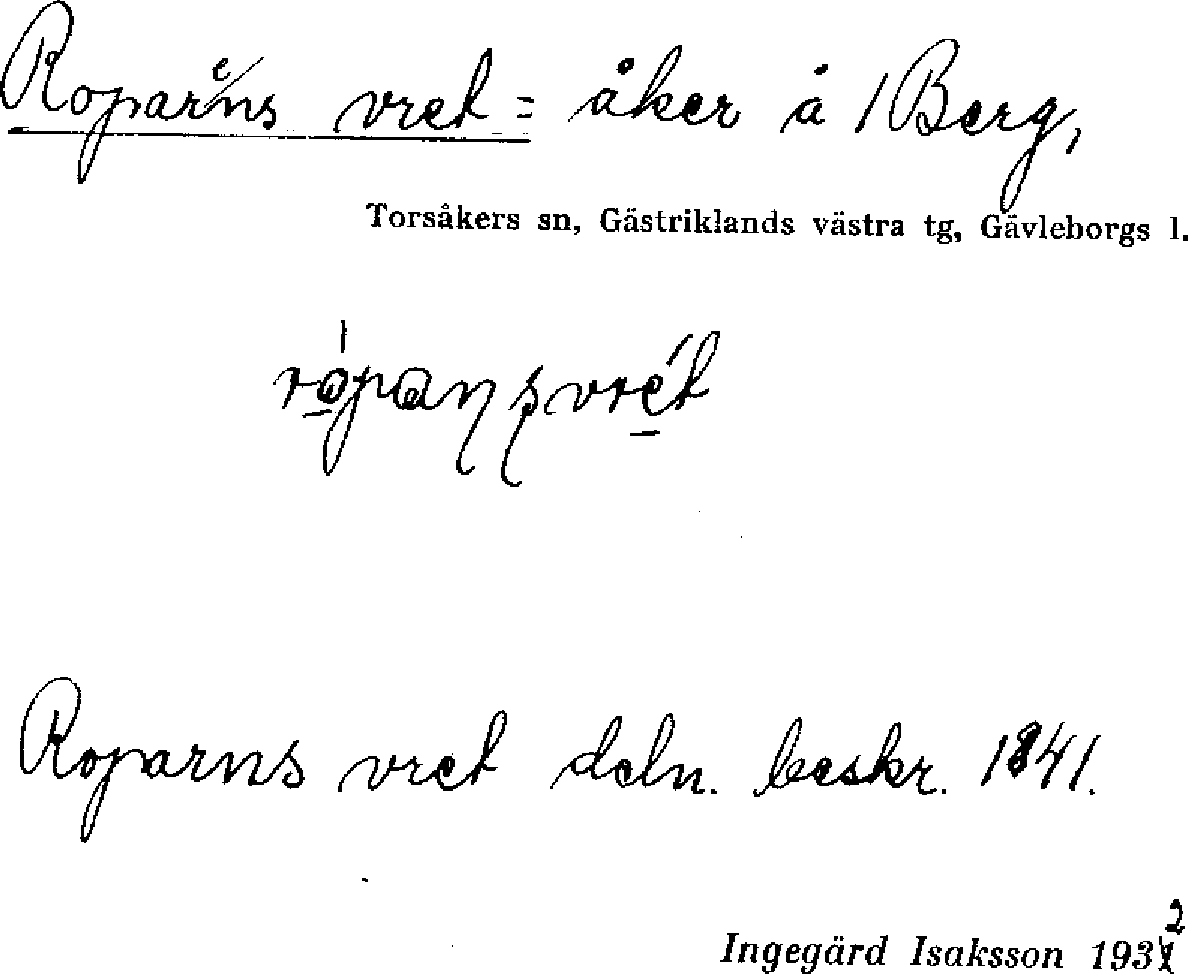 Roparens vret = åker å 1 Berg,
Torsåkers sn, Gästriklands västra tg, Gävleborgs l.
Roparns vret deln. beskr. 1841.
Ingegärd Isaksson 1932